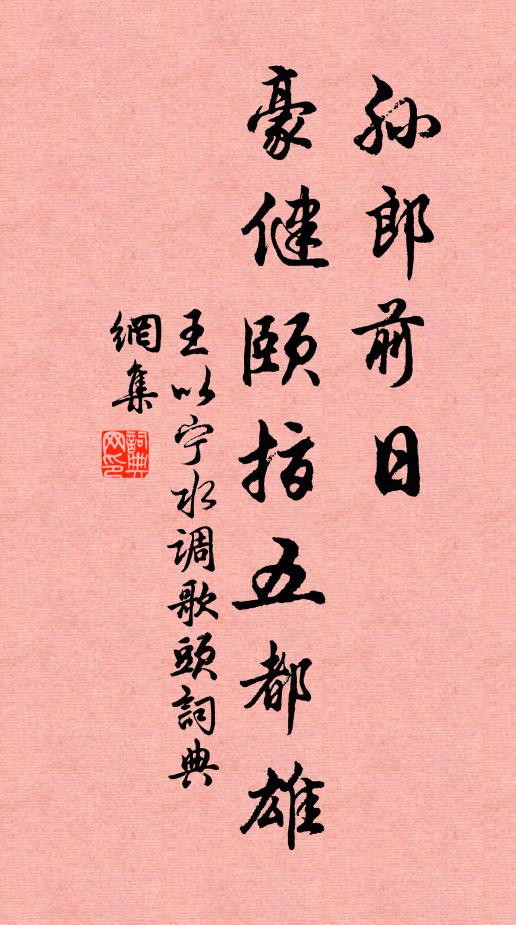 孙郎前日
豪健颐指五都雄
王以宁水调歌头詞典
網集
詞典网印